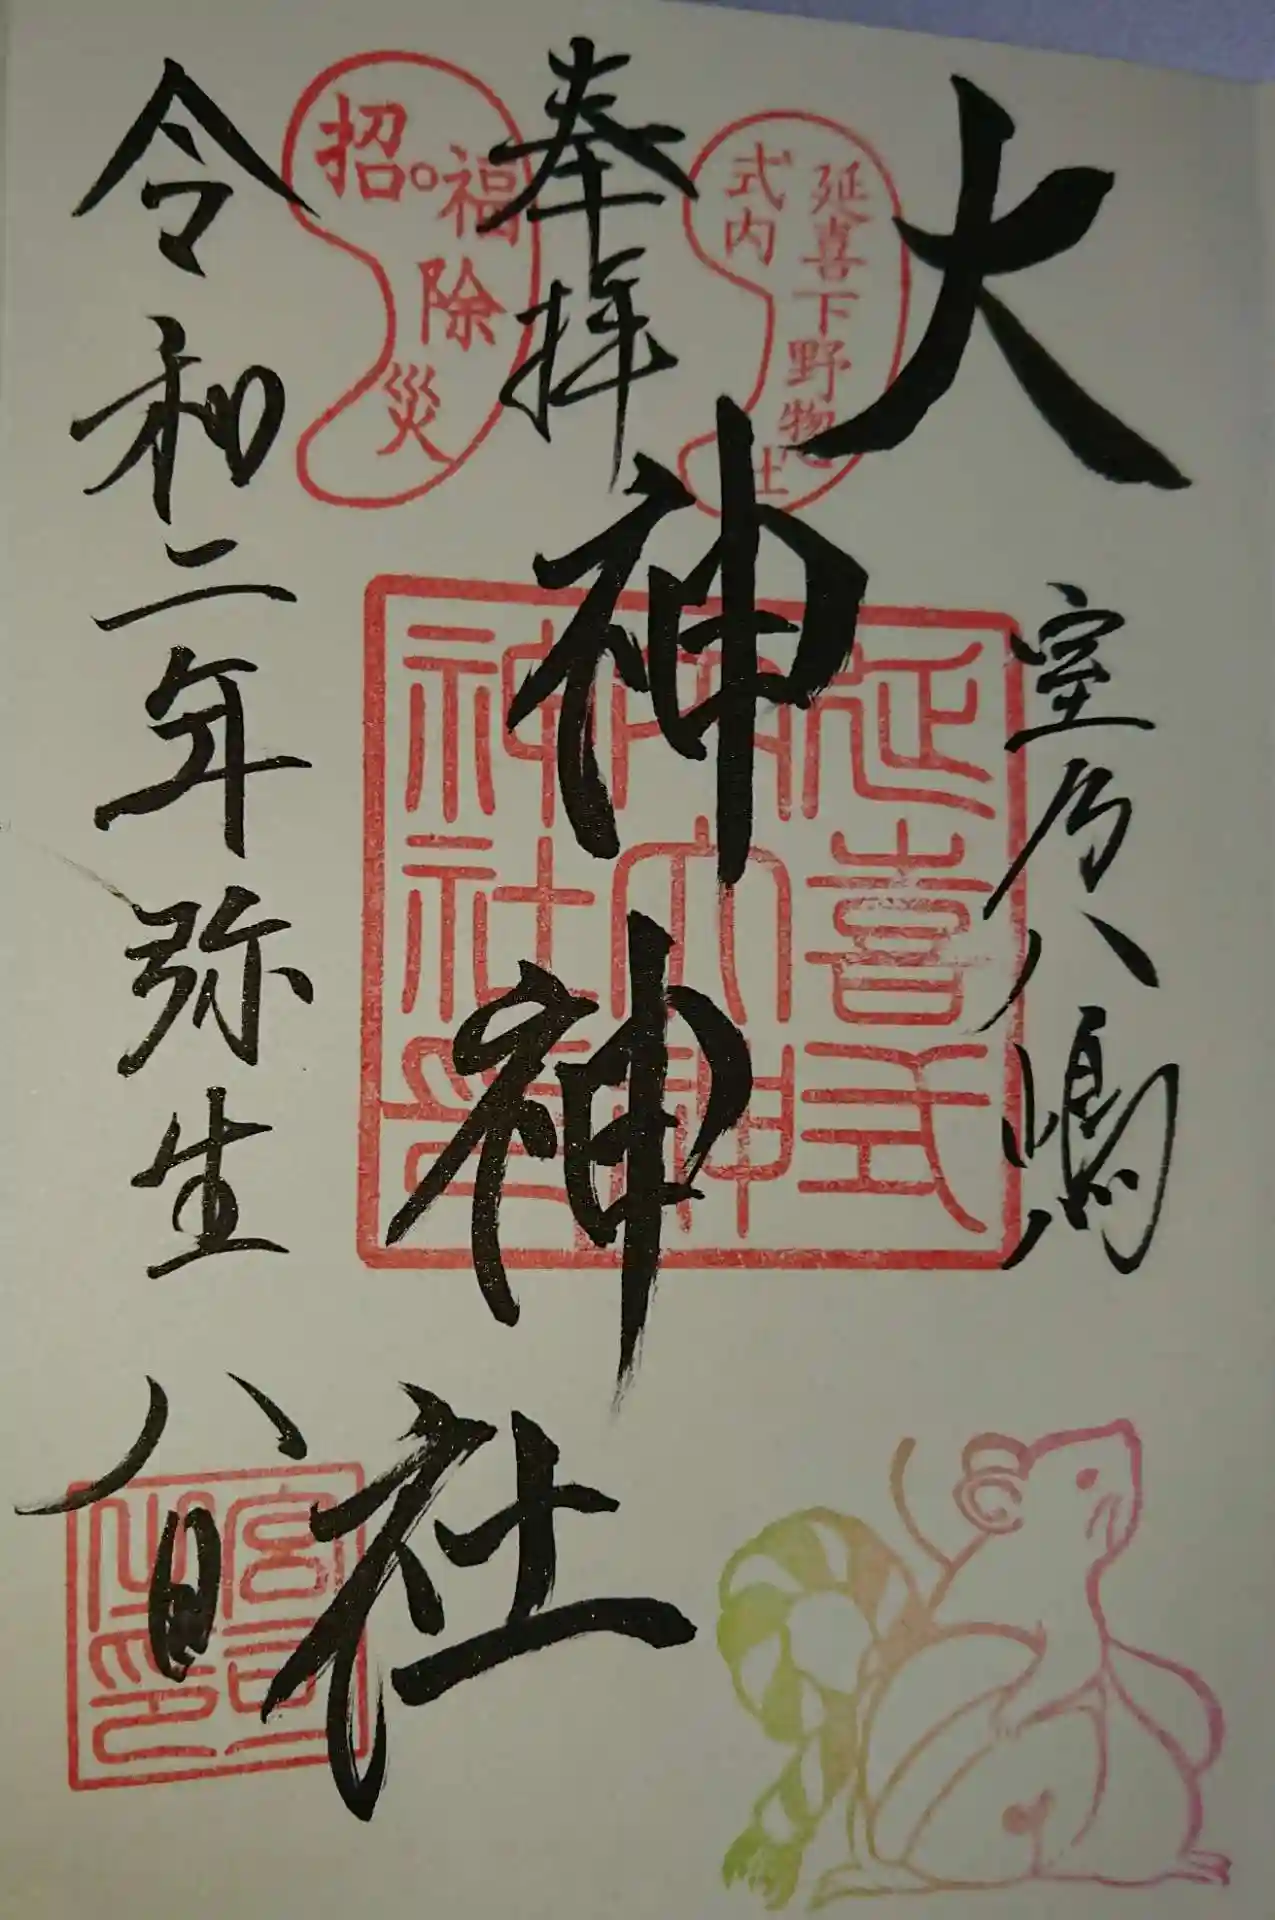 大神神社
室乃八嶋
延喜下野惣社
式内
奉拝
福除災
招
延喜式
内大神
神社印
令和二年弥生八日
宮司
之印